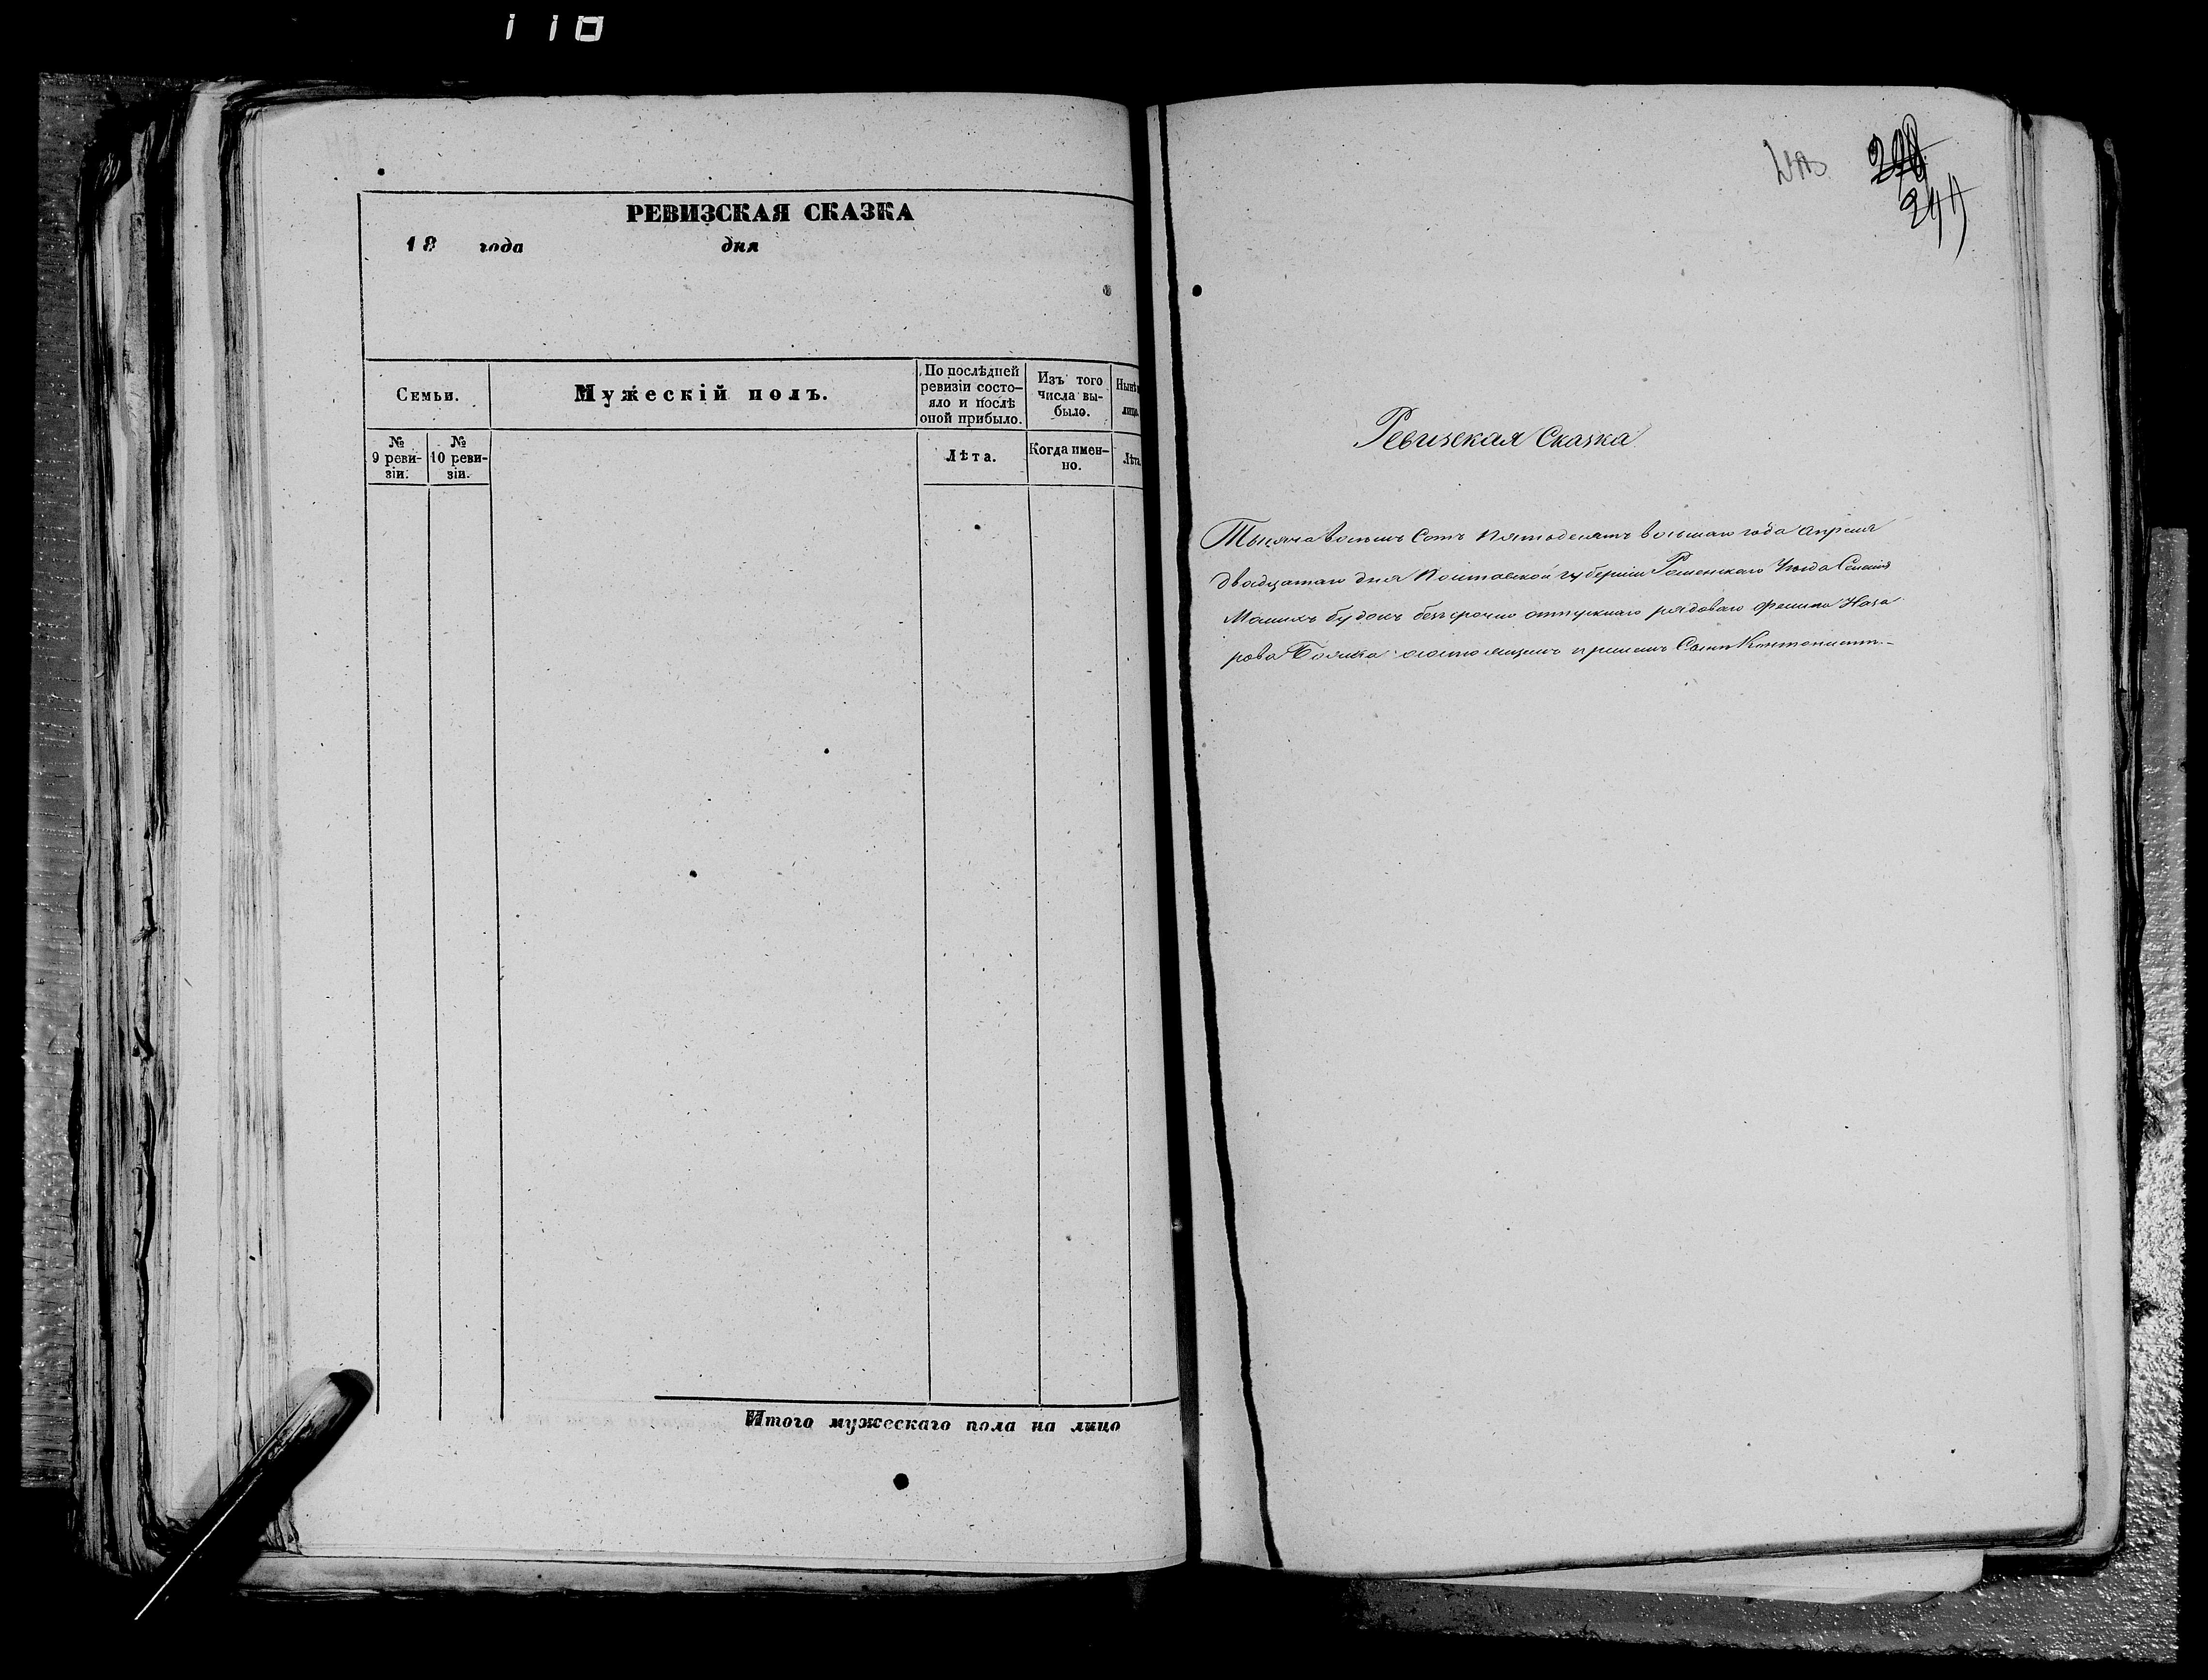 110
РЕВИЗСКАЯ СКАЗКА
18 года дня
Семьи.
Мужескій полъ.
По послѣдней ревизіи состо-
яло и послѣ оной прибыло.
Изъ того числа вы-
было.
Нынѣ
лицо.
№ 9 реви-
зіи.
№ 10 реви-
зіи.
Лѣта.
Когда имен-
но.
Лѣта.
Итого мужескаго пола на лицо
Ревизская Сказка
Тысяча восемь Сотъ Пятьдесятъ восьмаго года Апреля
двадцатаго дня Полтавской губерніи Роменскаго Уезда Селенія
Малихъ будокъ безсрочно отпускнаго рядоваго Наза
рова состоящемъ при немъ Сыне Кантонисте.